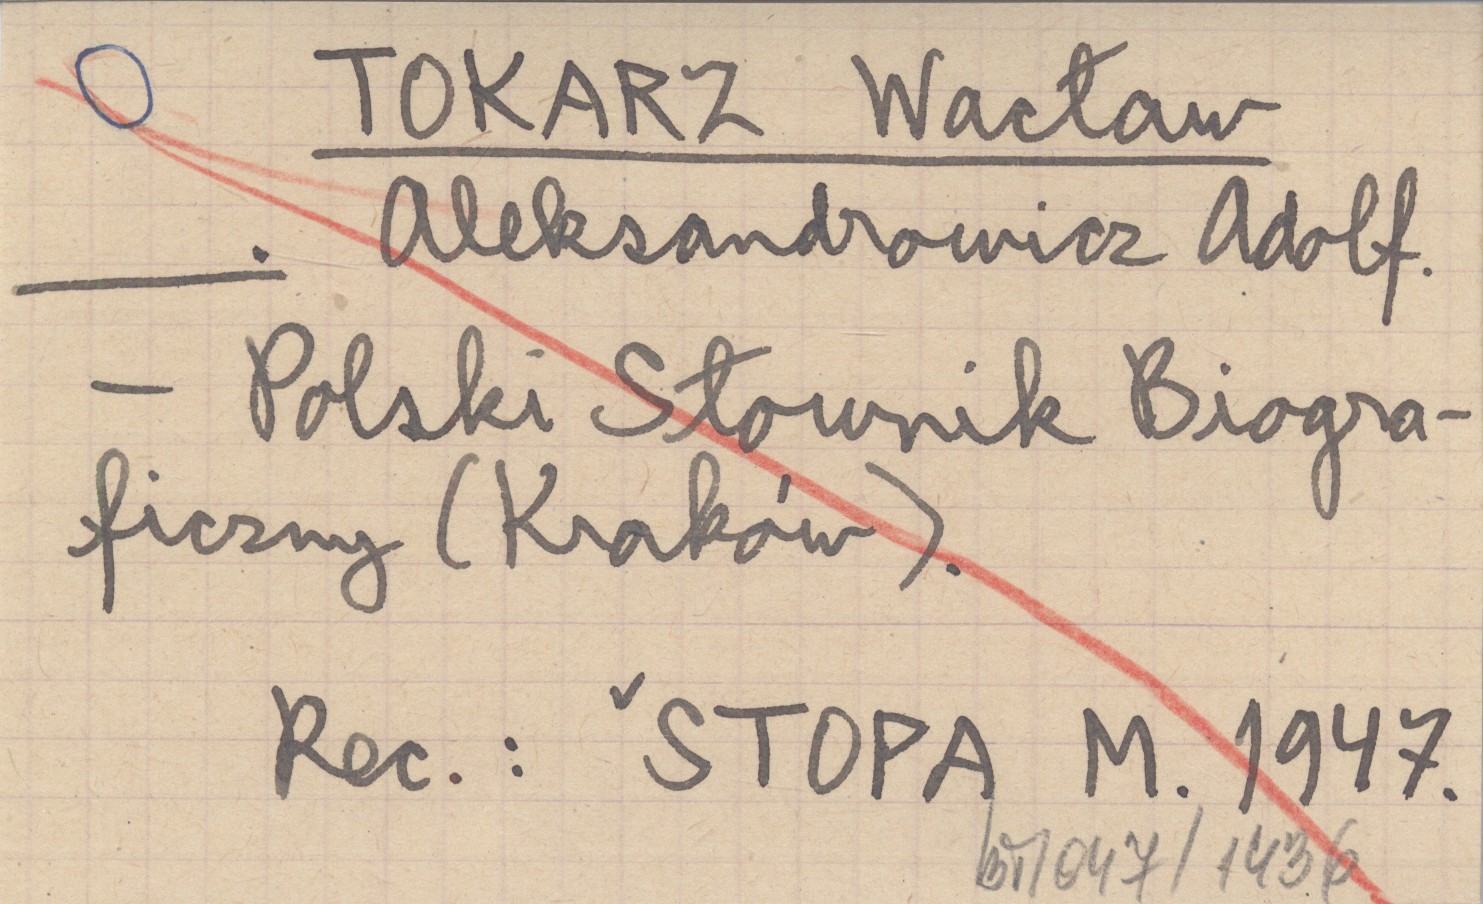 TOKARZ Wacław
. Aleksandrowicz Adolf.
– Polski Słownik Biogra-
ficzny (Kraków).
Rec.: ✓STOPA M. 1947.
/047/1436